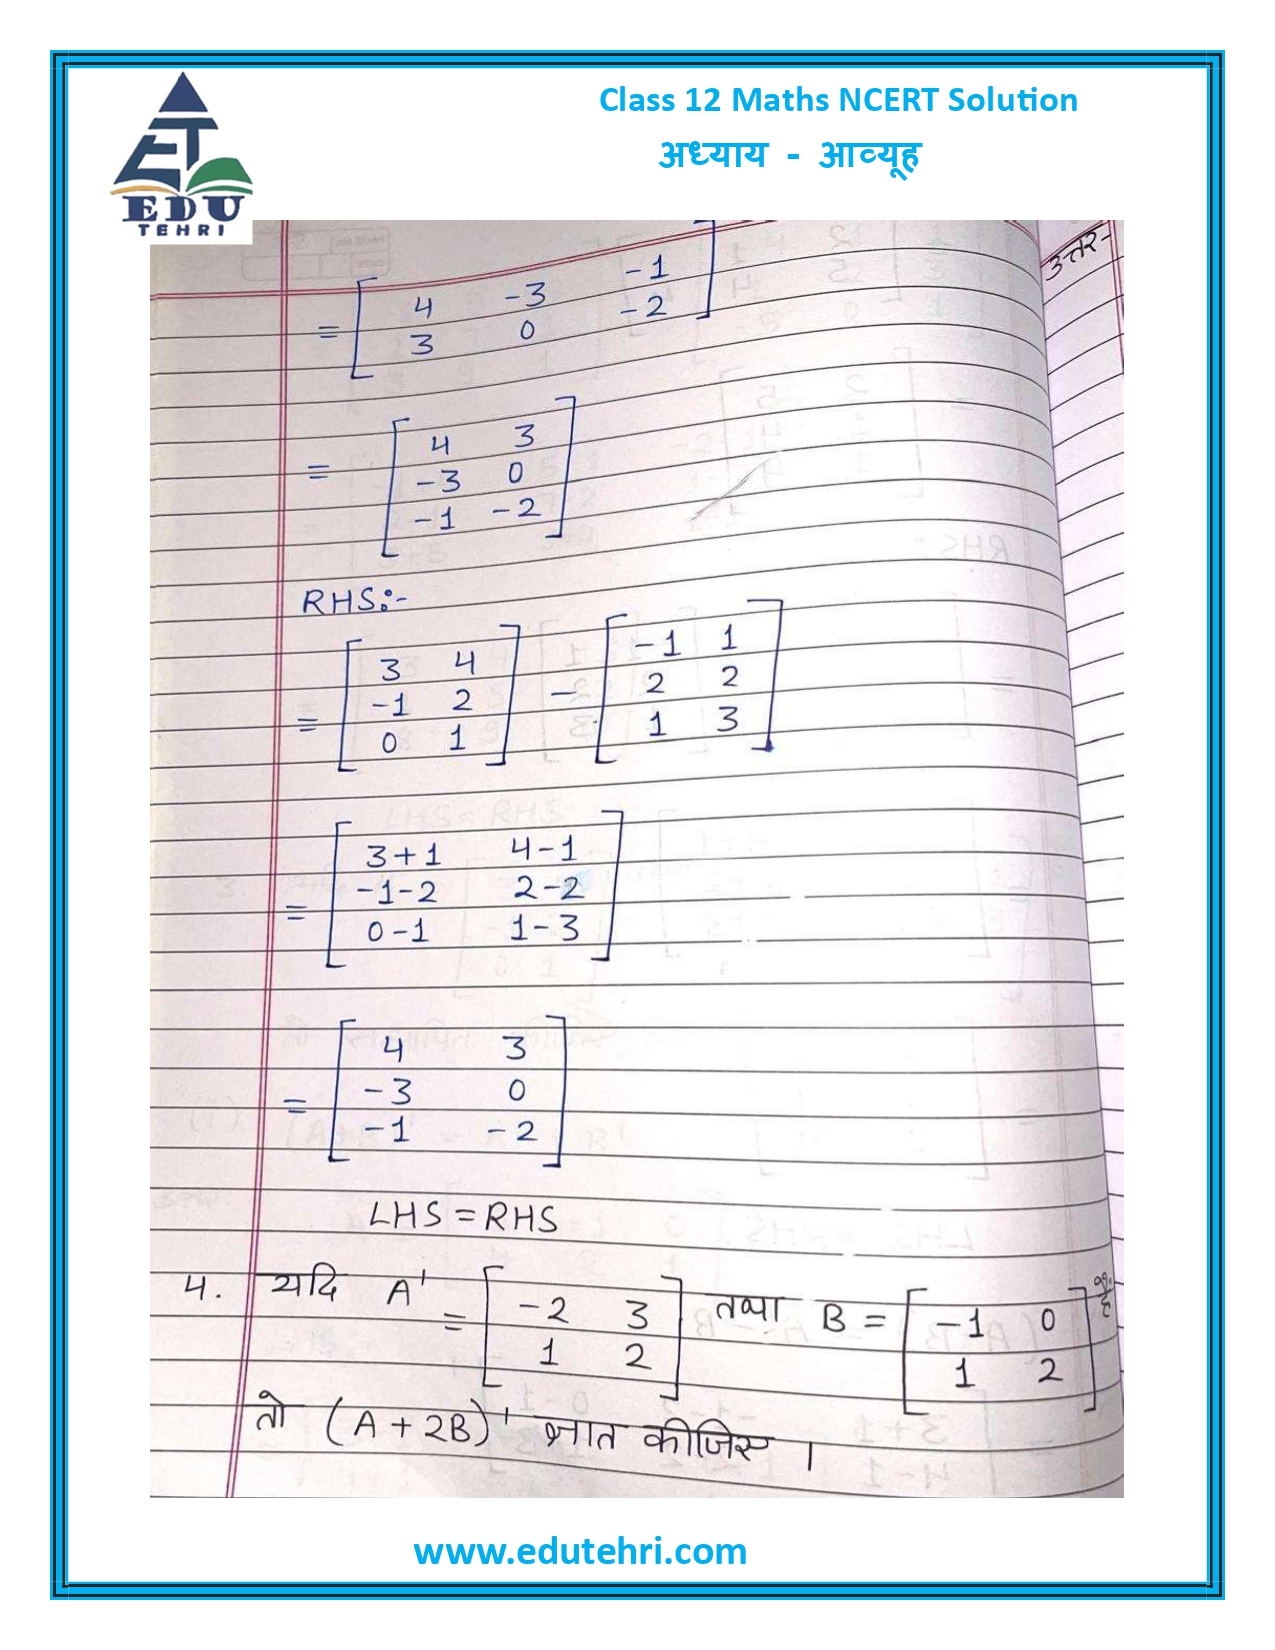 Class 12 Maths NCERT Solution
अध्याय - आव्यूह
EDU
TEHRI
उत्तर-
= [ 4 -3 -1
3 0 -2 ]
= [ 4 3
-3 0
-1 -2 ]
RHS:-
= [ 3 4
-1 2
0 1 ] - [ -1 1
2 2
1 3 ]
= [ 3+1 4-1
-1-2 2-2
0-1 1-3 ]
= [ 4 3
-3 0
-1 -2 ]
LHS = RHS
4. यदि A' = [ -2 3
1 2 ] तथा B = [ -1 0
1 2 ] हैं
तो (A + 2B)' ज्ञात कीजिए ।
www.edutehri.com